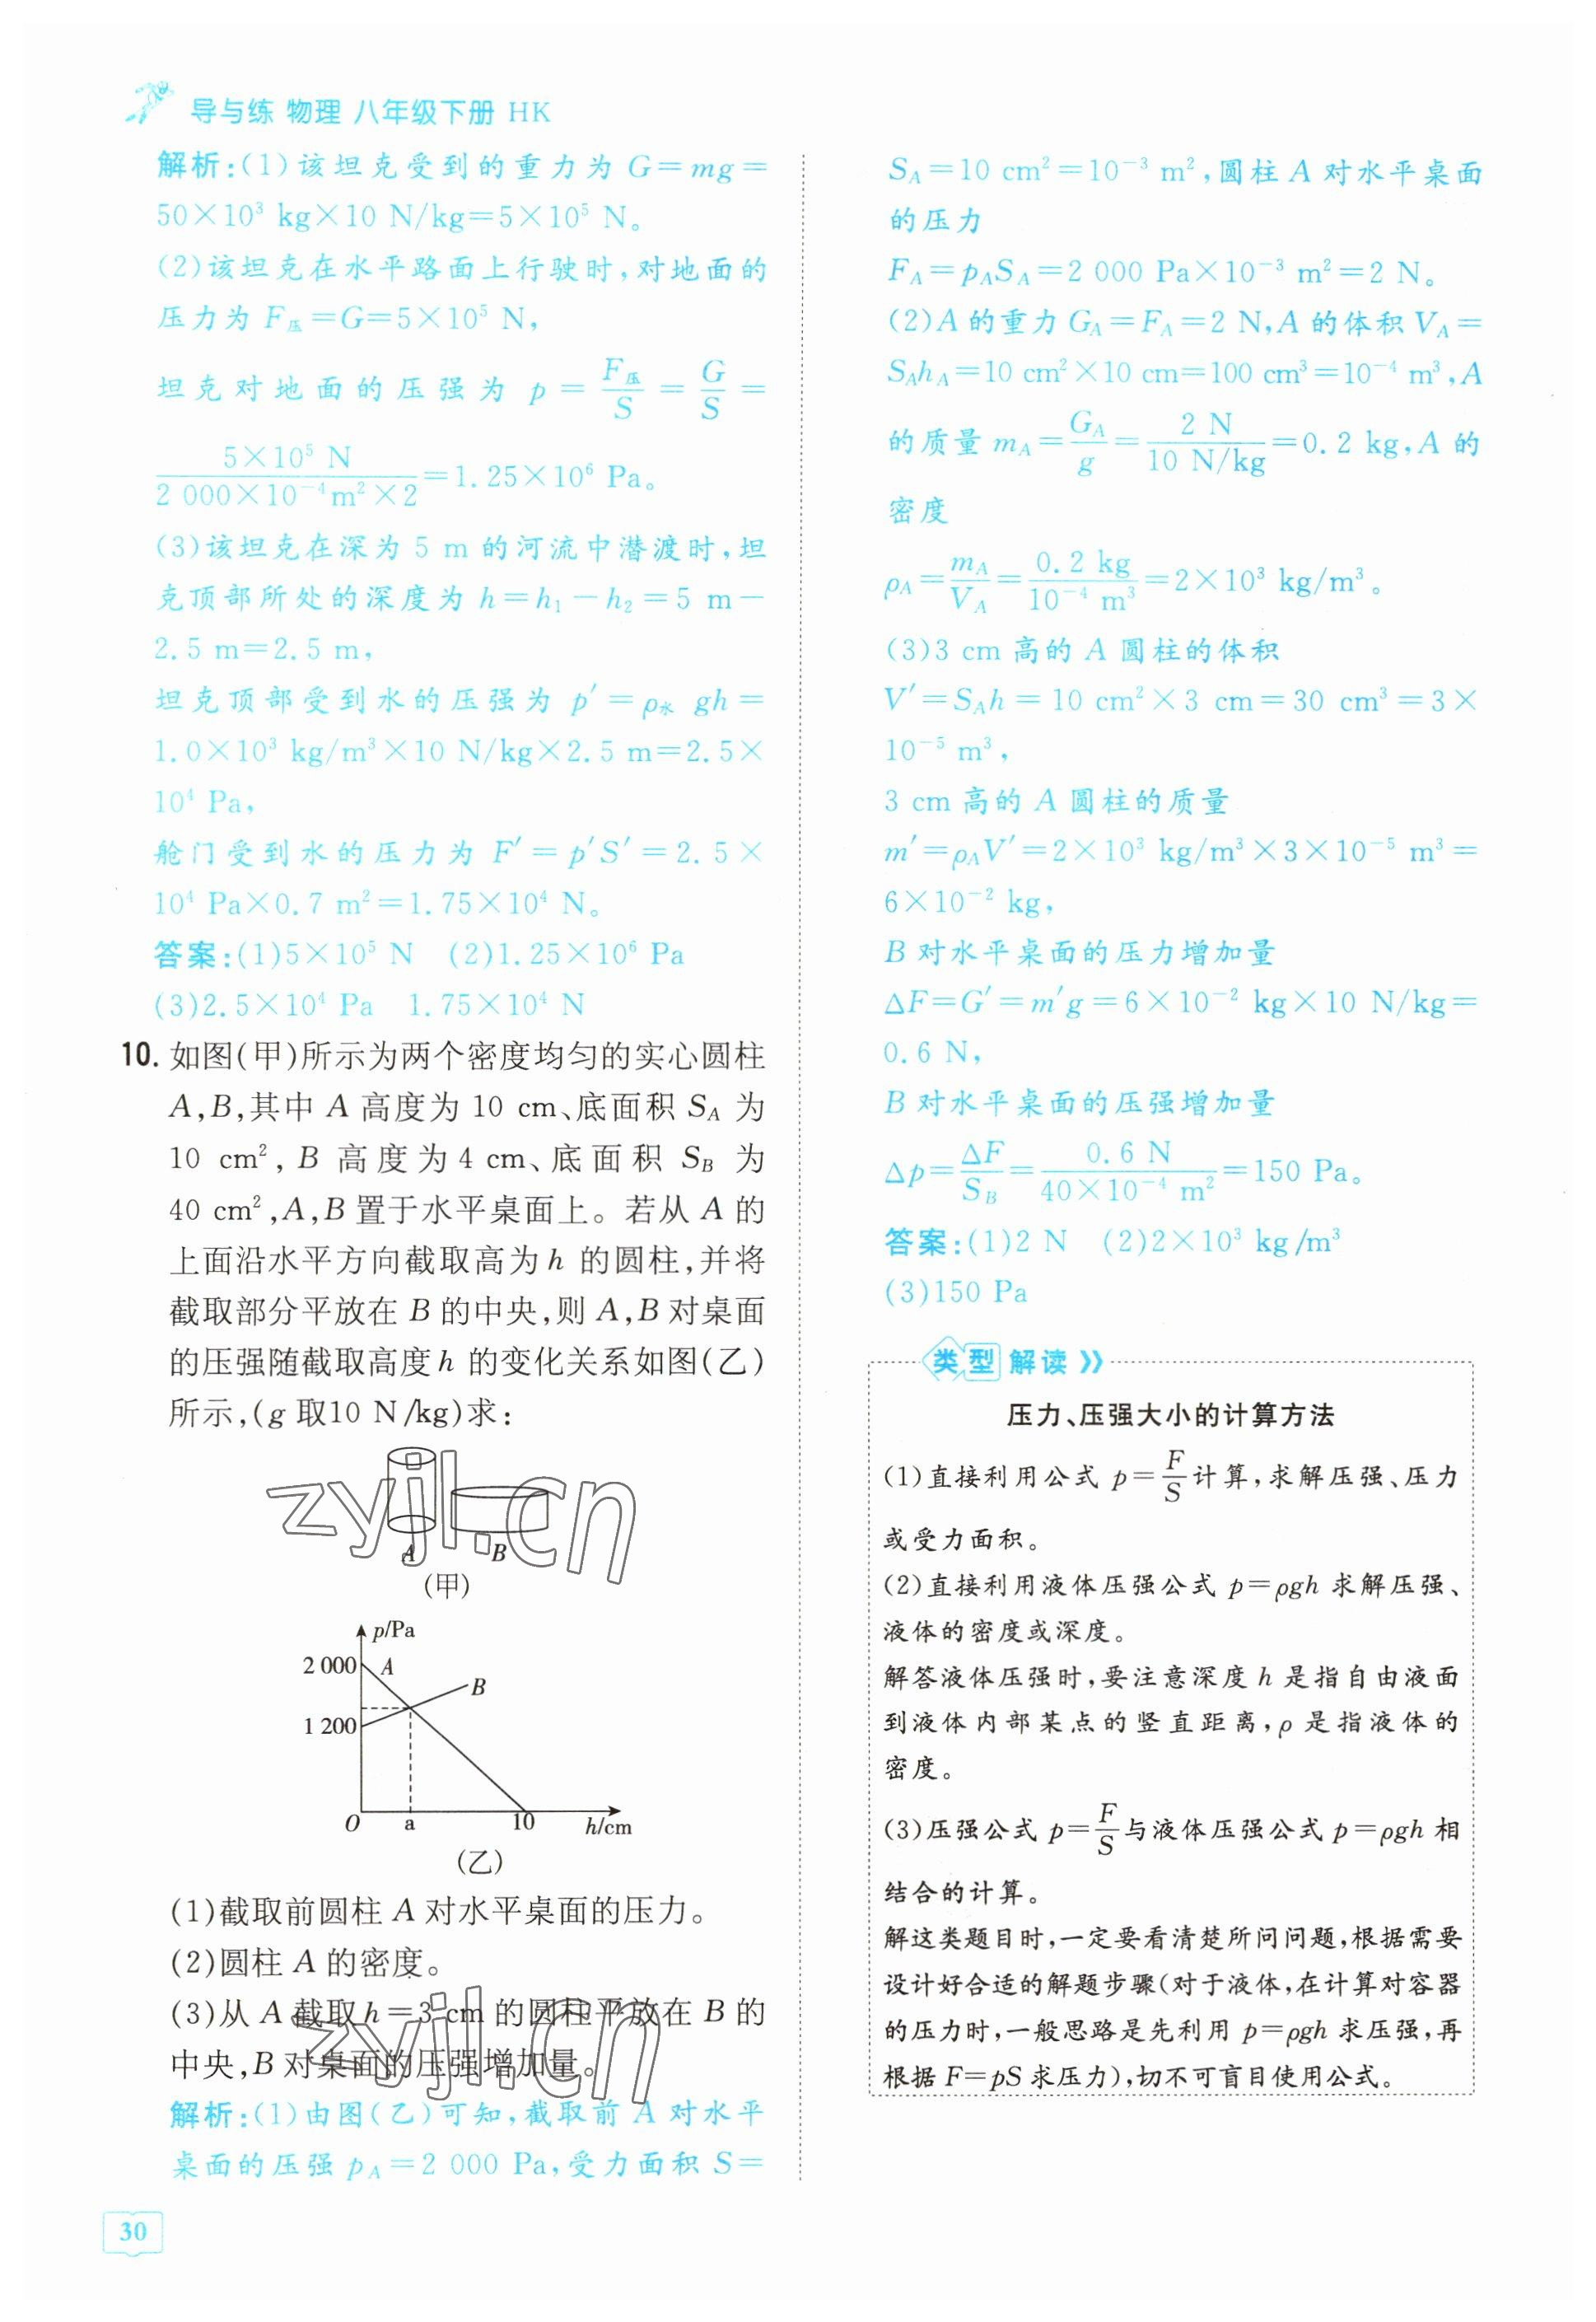 导与练 物理 八年级下册 HK
解析:(1)该坦克受到的重力为 G=mg=
50×10³ kg×10 N/kg=5×10⁵ N。
(2)该坦克在水平路面上行驶时,对地面的
压力为 F压=G=5×10⁵ N,
坦克对地面的压强为 p=F压/S=G/S=
5×10⁵ N/(2 000×10⁻⁴m²×2)=1.25×10⁶ Pa。
(3)该坦克在深为 5 m 的河流中潜渡时,坦
克顶部所处的深度为 h=h₁-h₂=5 m-
2.5 m=2.5 m,
坦克顶部受到水的压强为 p′=ρ水 gh=
1.0×10³ kg/m³×10 N/kg×2.5 m=2.5×
10⁴ Pa,
舱门受到水的压力为 F′=p′S′=2.5×
10⁴ Pa×0.7 m²=1.75×10⁴ N。
答案:(1)5×10⁵ N (2)1.25×10⁶ Pa
(3)2.5×10⁴ Pa 1.75×10⁴ N
10. 如图(甲)所示为两个密度均匀的实心圆柱
A,B,其中 A 高度为 10 cm、底面积 S_A 为
10 cm², B 高度为 4 cm、底面积 S_B 为
40 cm²,A,B 置于水平桌面上。若从 A 的
上面沿水平方向截取高为 h 的圆柱,并将
截取部分平放在 B 的中央,则 A,B 对桌面
的压强随截取高度 h 的变化关系如图(乙)
所示,(g 取10 N/kg)求:
zyjl.cn
A B
(甲)
p/Pa
2 000 A
B
1 200
O a 10 h/cm
(乙)
(1)截取前圆柱 A 对水平桌面的压力。
(2)圆柱 A 的密度。
(3)从 A 截取 h=3 cm 的圆柱平放在 B 的
中央,B 对桌面的压强增加量。
zyjl.cn
解析:(1)由图(乙)可知,截取前 A 对水平
桌面的压强 p_A=2 000 Pa,受力面积 S=
30
S_A=10 cm²=10⁻³ m²,圆柱 A 对水平桌面
的压力
F_A=p_AS_A=2 000 Pa×10⁻³ m²=2 N。
(2)A 的重力 G_A=F_A=2 N,A 的体积 V_A=
S_Ah_A=10 cm²×10 cm=100 cm³=10⁻⁴ m³,A
的质量 m_A=G_A/g=2 N/(10 N/kg)=0.2 kg,A 的
密度
ρ_A=m_A/V_A=0.2 kg/(10⁻⁴ m³)=2×10³ kg/m³。
(3)3 cm 高的 A 圆柱的体积
V′=S_Ah=10 cm²×3 cm=30 cm³=3×
10⁻⁵ m³,
3 cm 高的 A 圆柱的质量
m′=ρ_AV′=2×10³ kg/m³×3×10⁻⁵ m³=
6×10⁻² kg,
B 对水平桌面的压力增加量
ΔF=G′=m′g=6×10⁻² kg×10 N/kg=
0.6 N,
B 对水平桌面的压强增加量
Δp=ΔF/S_B=0.6 N/(40×10⁻⁴ m²)=150 Pa。
答案:(1)2 N (2)2×10³ kg/m³
(3)150 Pa
类型 解读》
压力、压强大小的计算方法
(1)直接利用公式 p=F/S计算,求解压强、压力
或受力面积。
(2)直接利用液体压强公式 p=ρgh 求解压强、
液体的密度或深度。
解答液体压强时,要注意深度 h 是指自由液面
到液体内部某点的竖直距离,ρ 是指液体的
密度。
(3)压强公式 p=F/S与液体压强公式 p=ρgh 相
结合的计算。
解这类题目时,一定要看清楚所问问题,根据需要
设计好合适的解题步骤(对于液体,在计算对容器
的压力时,一般思路是先利用 p=ρgh 求压强,再
根据 F=pS 求压力),切不可盲目使用公式。